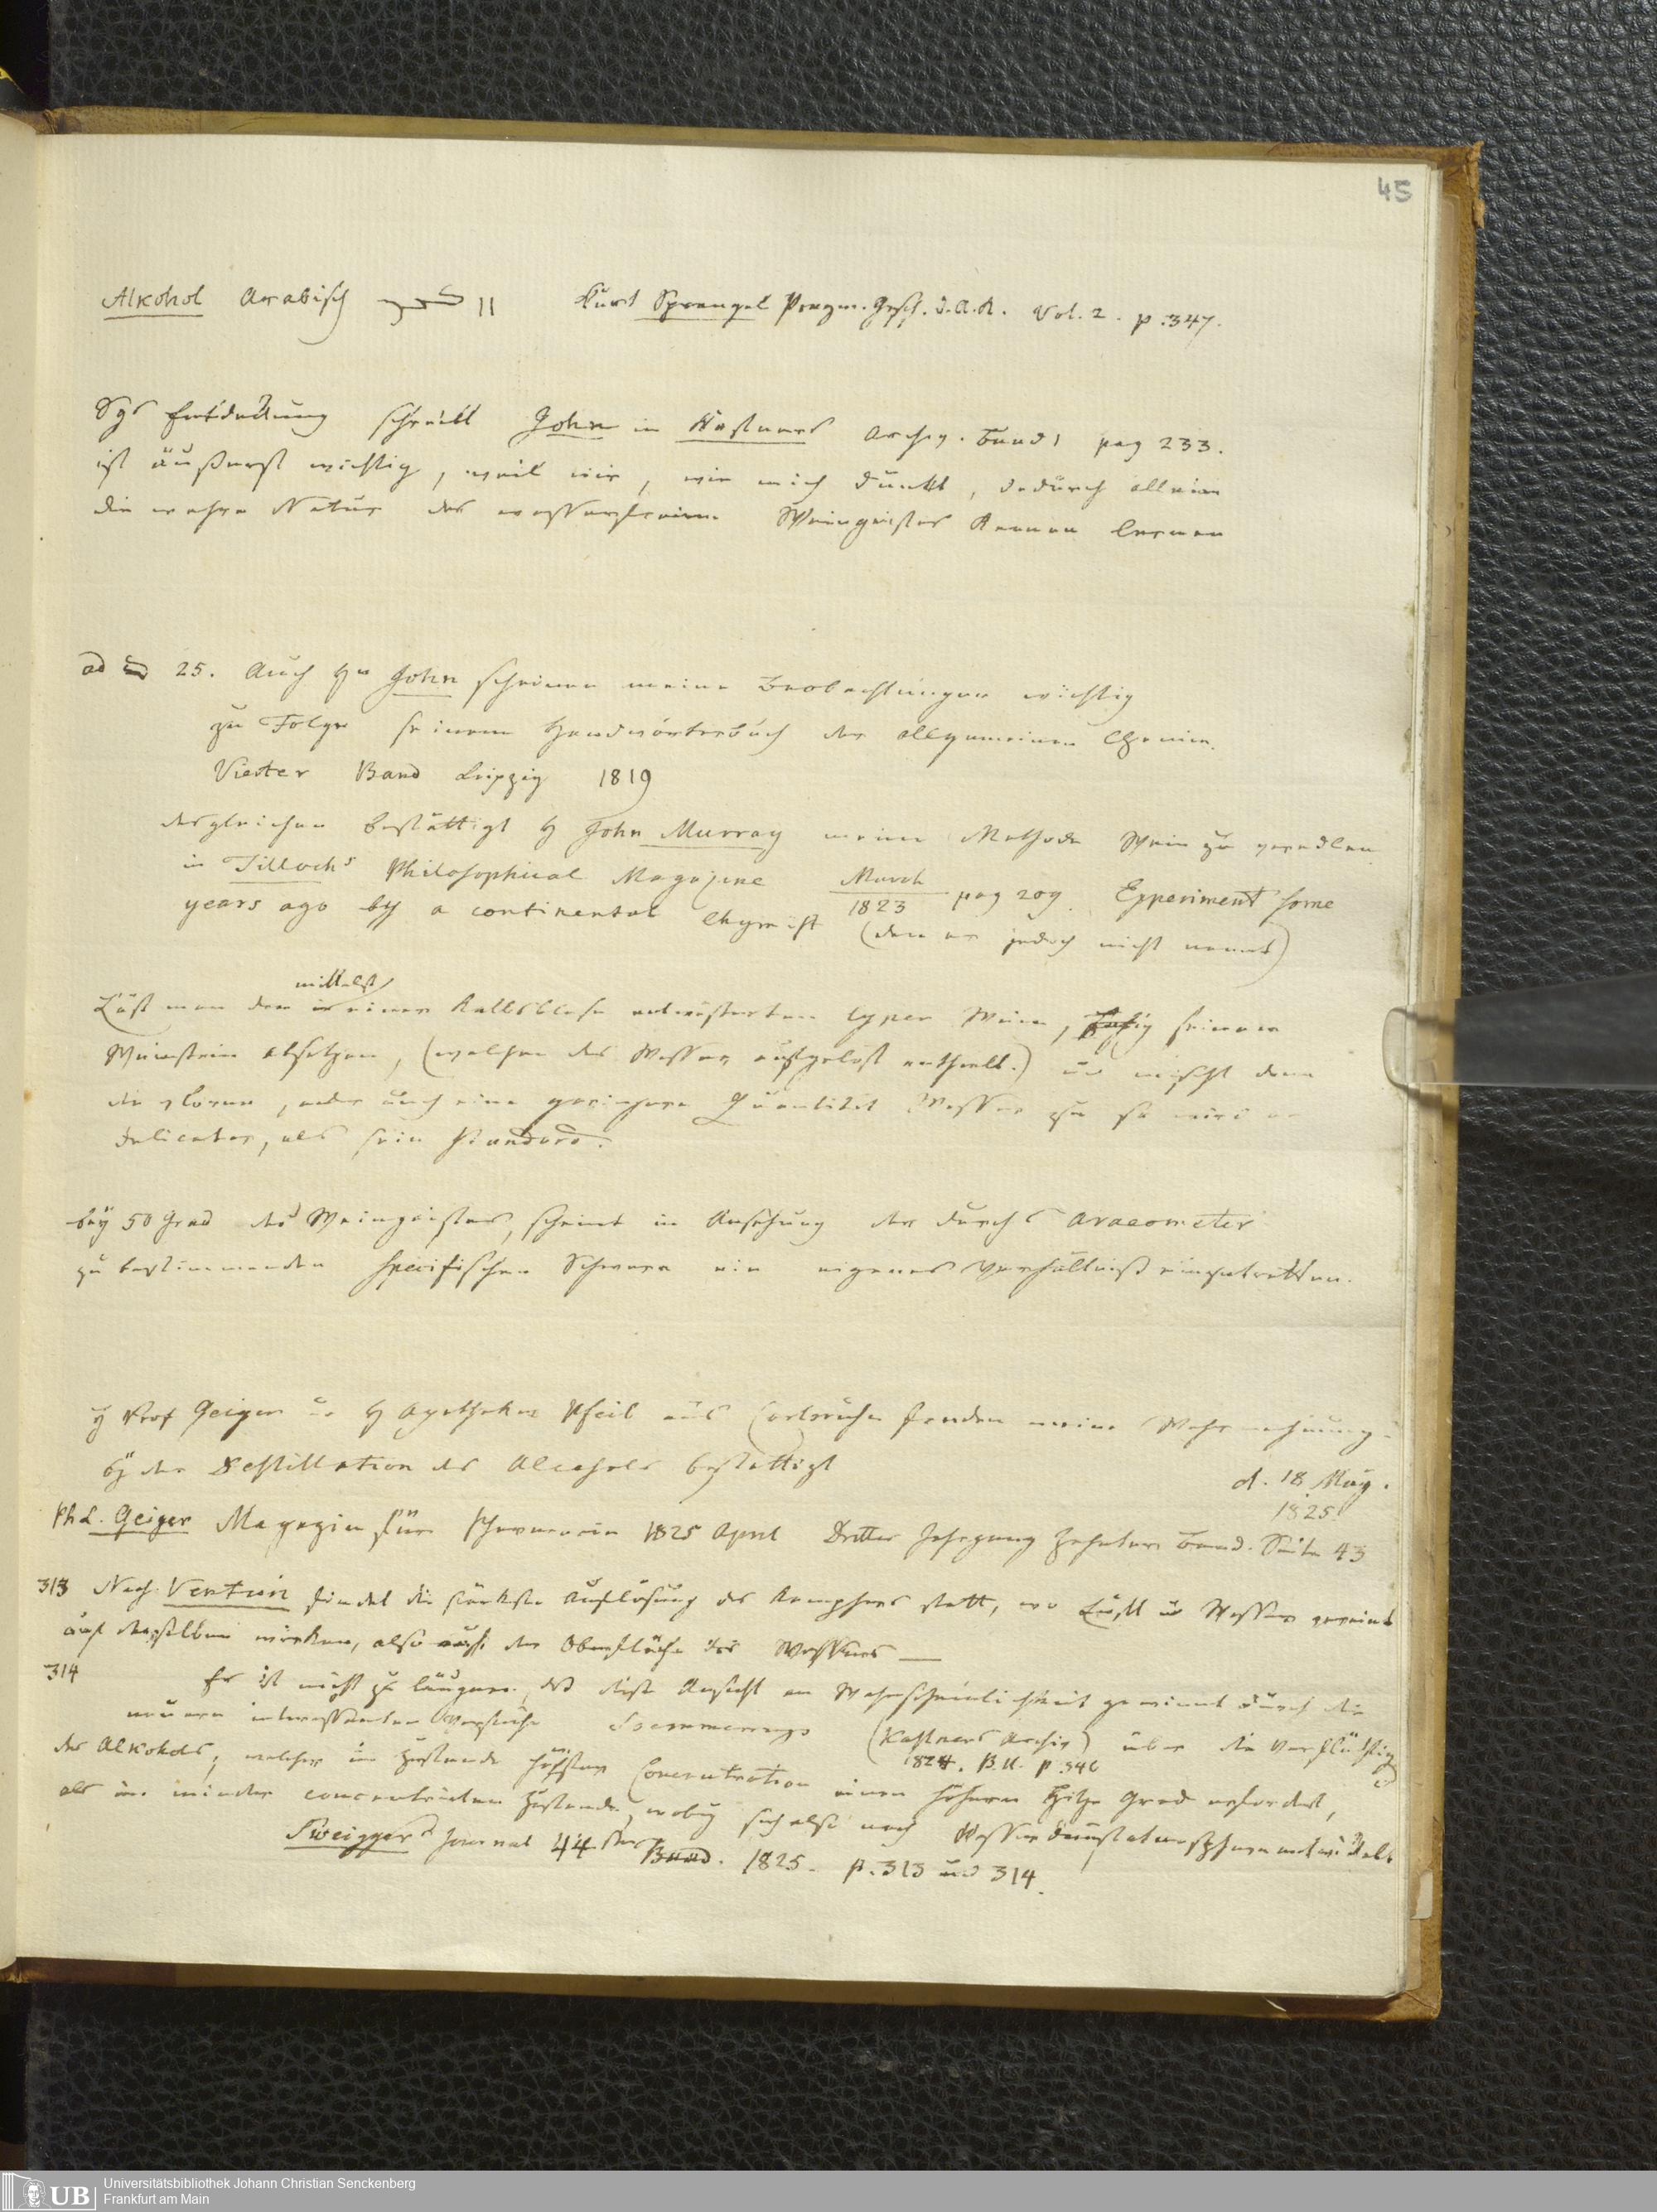 45
Alkohol Arabisch Kurt Sprengel Pragm. Gesch. d. A. K. Vol. 2. p. 347.
Sgs Entdeckung schreibt John in Kastners Archiv. Band 1 pag 233.
ist äußerst wichtig, weil wir, wie mich dünkt, dadurch allein
die wahre Natur des wasserfreien Weingeistes kennen lernen
ad 25. Auch Hn John scheinen meine Beobachtungen wichtig
zu Folge seinem Handwörterbuch der allgemeinen Chemie.
Vierter Band Leipzig 1819
desgleichen bestättigt H John Murray meine Methode Wein zu veredlen
in Tillochs Philosophical Magazine March 1823 pag 209. Experiment some
years ago by a continental Chymist (den er jedoch nicht nennt)
mittelst
Läßt man den in einer Kalbsblase entwässerten Cyper Wein, seinen
Weinstein absetzen, (welchen das Wasser aufgelöst enthielt.) und mischt dann
die verlorne, oder auch eine geringere Quantität Wasser zu so wird er
delicater, als sein Standard.
bey 50 Grad des Weingeistes, scheint in Ansehung der durchs Araeometer
zu bestimmenden specifischen Schwere ein eigenes Verhältniß einzutretten.
H Prof Geiger u H Apotheker Pfeil aus Carlsruhe fanden meine Wahrnehmung
bey der Destillation des Alcohols bestättigt
d. 18 May.
1825.
Ph L. Geiger Magazin für Pharmacie 1825 April Dritter Jahrgang Zehnter Band. Seite 43
313 Nach Venturi findet die stärkste Auflösung des Kamphers statt, wo Luft und Wasser vereint
auf denselben wirken, also auf der Oberfläche des Wassers —
314 Es ist nicht zu läugnen, daß diese Ansicht an Wahrscheinlichkeit gewinnt durch die
neuern interessanten Versuche Soemmerrings (Kastners Archiv) über die Verflüchtig
1824. B. II. p. 340
des Alkohols, welcher im Zustande höchster Concentration einen höhern Hitze Grad erfordert,
als im minder concentrirten Zustande, wobey sich also noch Wasserdunstatmosphäre entwickelt
Sweiggers Journal 44ster Band. 1825. p. 313 und 314.
Universitätsbibliothek Johann Christian Senckenberg
Frankfurt am Main
UB